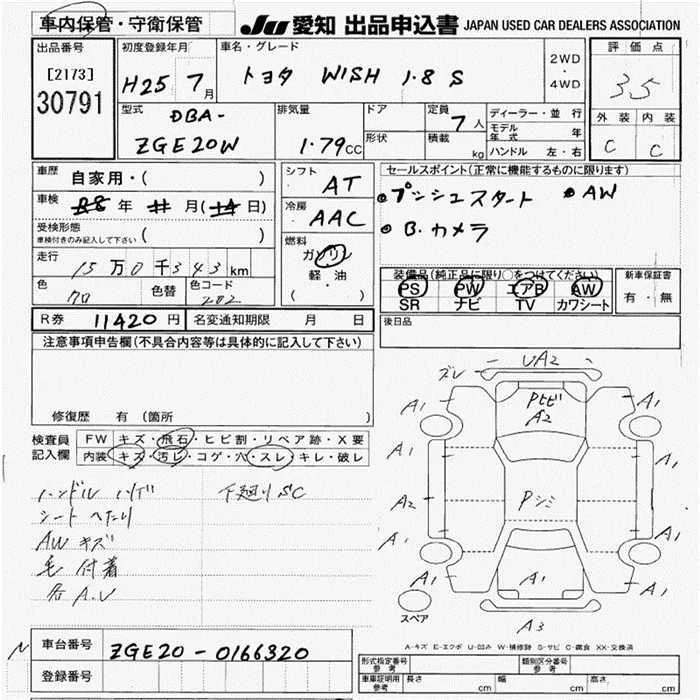 車内保管・守衛保管 JU 愛知 出品申込書 JAPAN USED CAR DEALERS ASSOCIATION
出品番号 初度登録年月 車名・グレード 2WD・4WD 評価点
[2173] H25年7月 トヨタ WISH 1.8 S 3.5
30791
型式 排気量 ドア 定員 ディーラー・並行 外装 内装
DBA- 7人 モデル年式 年
ZGE20W 1.79CC 形状 積載 kg ハンドル 左・右 C C
車歴 自家用・( ) シフト AT セールスポイント(正常に機能するものに限ります)
車検 年 月( 日) 冷房 AAC ●プッシュスタート ●AW
受検形態 ( ) ●B.カメラ
車検付きのみ記入して下さい
燃料 ガソリン
走行 15万0千343km 軽油
装備品(純正品に限り○をつけてください) 新車保証書
色 色替 色コード ( ) PS PW エアB AW 有・無
202 SR ナビ TV カワシート
R券 11420円 名変通知期限 月 日 後日品
注意事項申告欄(不具合内容等は具体的に記入して下さい)
修復歴 有 (箇所 )
検査員 FW キズ・飛石・ヒビ割・リペア跡・X要
記入欄 内装 キズ・汚レ・コゲ・穴・スレ・キレ・破レ
下廻りSC
シート へたり
AW キズ
毛 付着
ズレ UA2
A1 Pヒビ A1
A2
A1 A1
A2 Pシミ A1
A1 A1
A1 A1 A1
スペア
A3
A-キズ E-エクボ U-凹み W-補修跡 S-サビ C-腐食 XX-交換済
車台番号 ZGE20-0166320
登録番号
形式指定番号 参考 類別区分番号 参考
車庫証明用 参考 長さ cm 幅 cm 高さ cm